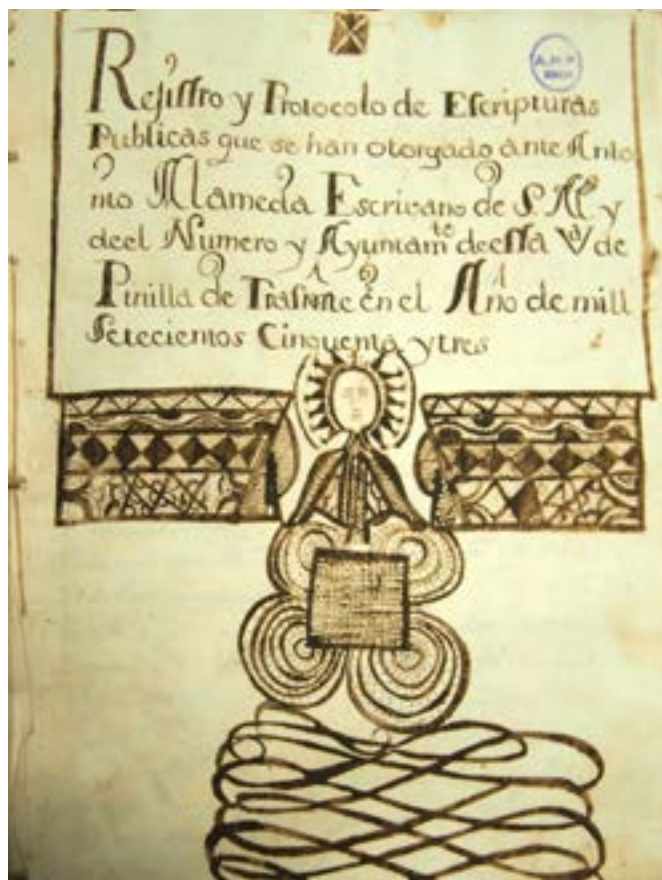 Rejistro y Protocolo de Escripturas
Publicas que se han otorgado ante Anto
nio Alameda Escrivano de S. M. y
deel Numero y Ayuntam.to deesta V.a de
Pinilla de Trasmte en el Año de mill
Setecientos Cinquenta ytres